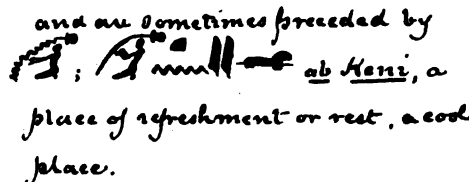 and are sometimes preceded by
; ab
place of refreshment or rest, a cool
place.